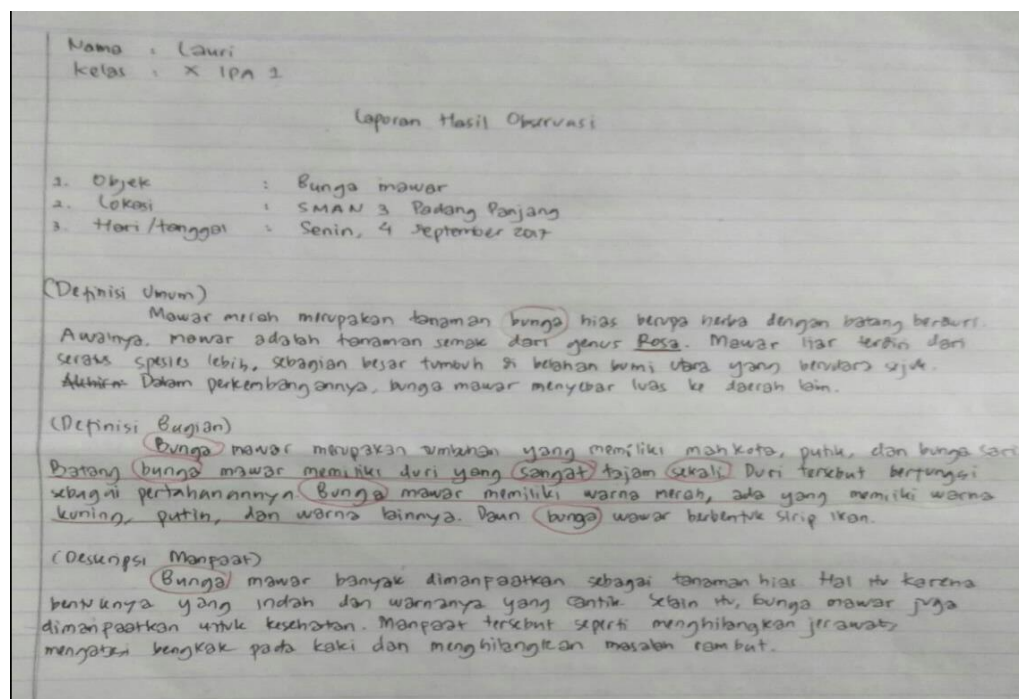 Nama : Lauri
Kelas : X IPA 1
Laporan Hasil Observasi
1. Objek : Bunga mawar
2. Lokasi : SMAN 3 Padang Panjang
3. Hari/tanggal : Senin, 4 September 2017
(Definisi Umum)
Mawar merah merupakan tanaman bunga hias berupa herba dengan batang berduri.
Awalnya, mawar adalah tanaman semak dari genus Rosa. Mawar liar terdiri dari
seratus spesies lebih, sebagian besar tumbuh di belahan bumi utara yang berudara sejuk.
Dalam perkembangannya, bunga mawar menyebar luas ke daerah lain.
(Definisi Bagian)
Bunga mawar merupakan tumbuhan yang memiliki mahkota, putik, dan bunga sari
Batang bunga mawar memiliki duri yang sangat tajam sekali Duri tersebut berfungsi
sebagai pertahanannya. Bunga mawar memiliki warna merah, ada yang memiliki warna
kuning, putih, dan warna lainnya. Daun bunga wawar berbentuk sirip ikan.
(Deskripsi Manpaat)
Bunga mawar banyak dimanpaatkan sebagai tanaman hias Hal itu karena
bentuknya yang indah dan warnanya yang cantik Selain itu, bunga mawar juga
dimanpaatkan untuk kesehatan. Manpaat tersebut seperti menghilangkan jerawat,
mengatasi bengkak pada kaki dan menghilangkan masalah rambut.